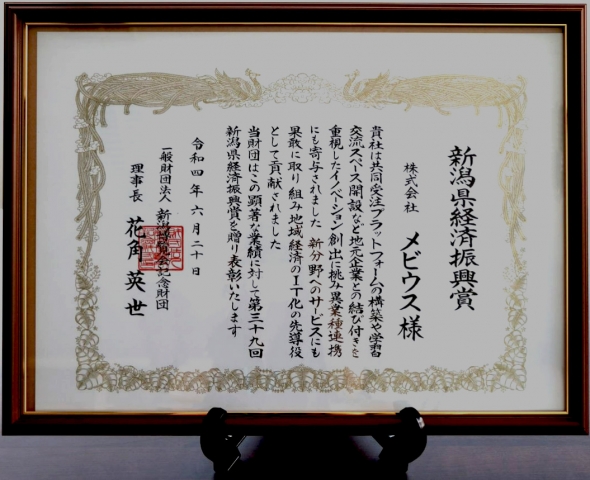 新潟県経済振興賞
株式会社 メビウス様
貴社は共同受注プラットフォームの構築や学習
交流スペース開設など地元企業との結び付きを
重視したイノベーション創出に挑み異業種連携
にも寄与されました 新分野へのサービスにも
果敢に取り組み地域経済のIT化の先導役
として貢献されました
当財団はこの顕著な業績に対して第三十九回
新潟県経済振興賞を贈り表彰いたします
令和四年六月二十日
一般財団法人 新潟博覧会記念財団
理事長 花角英世